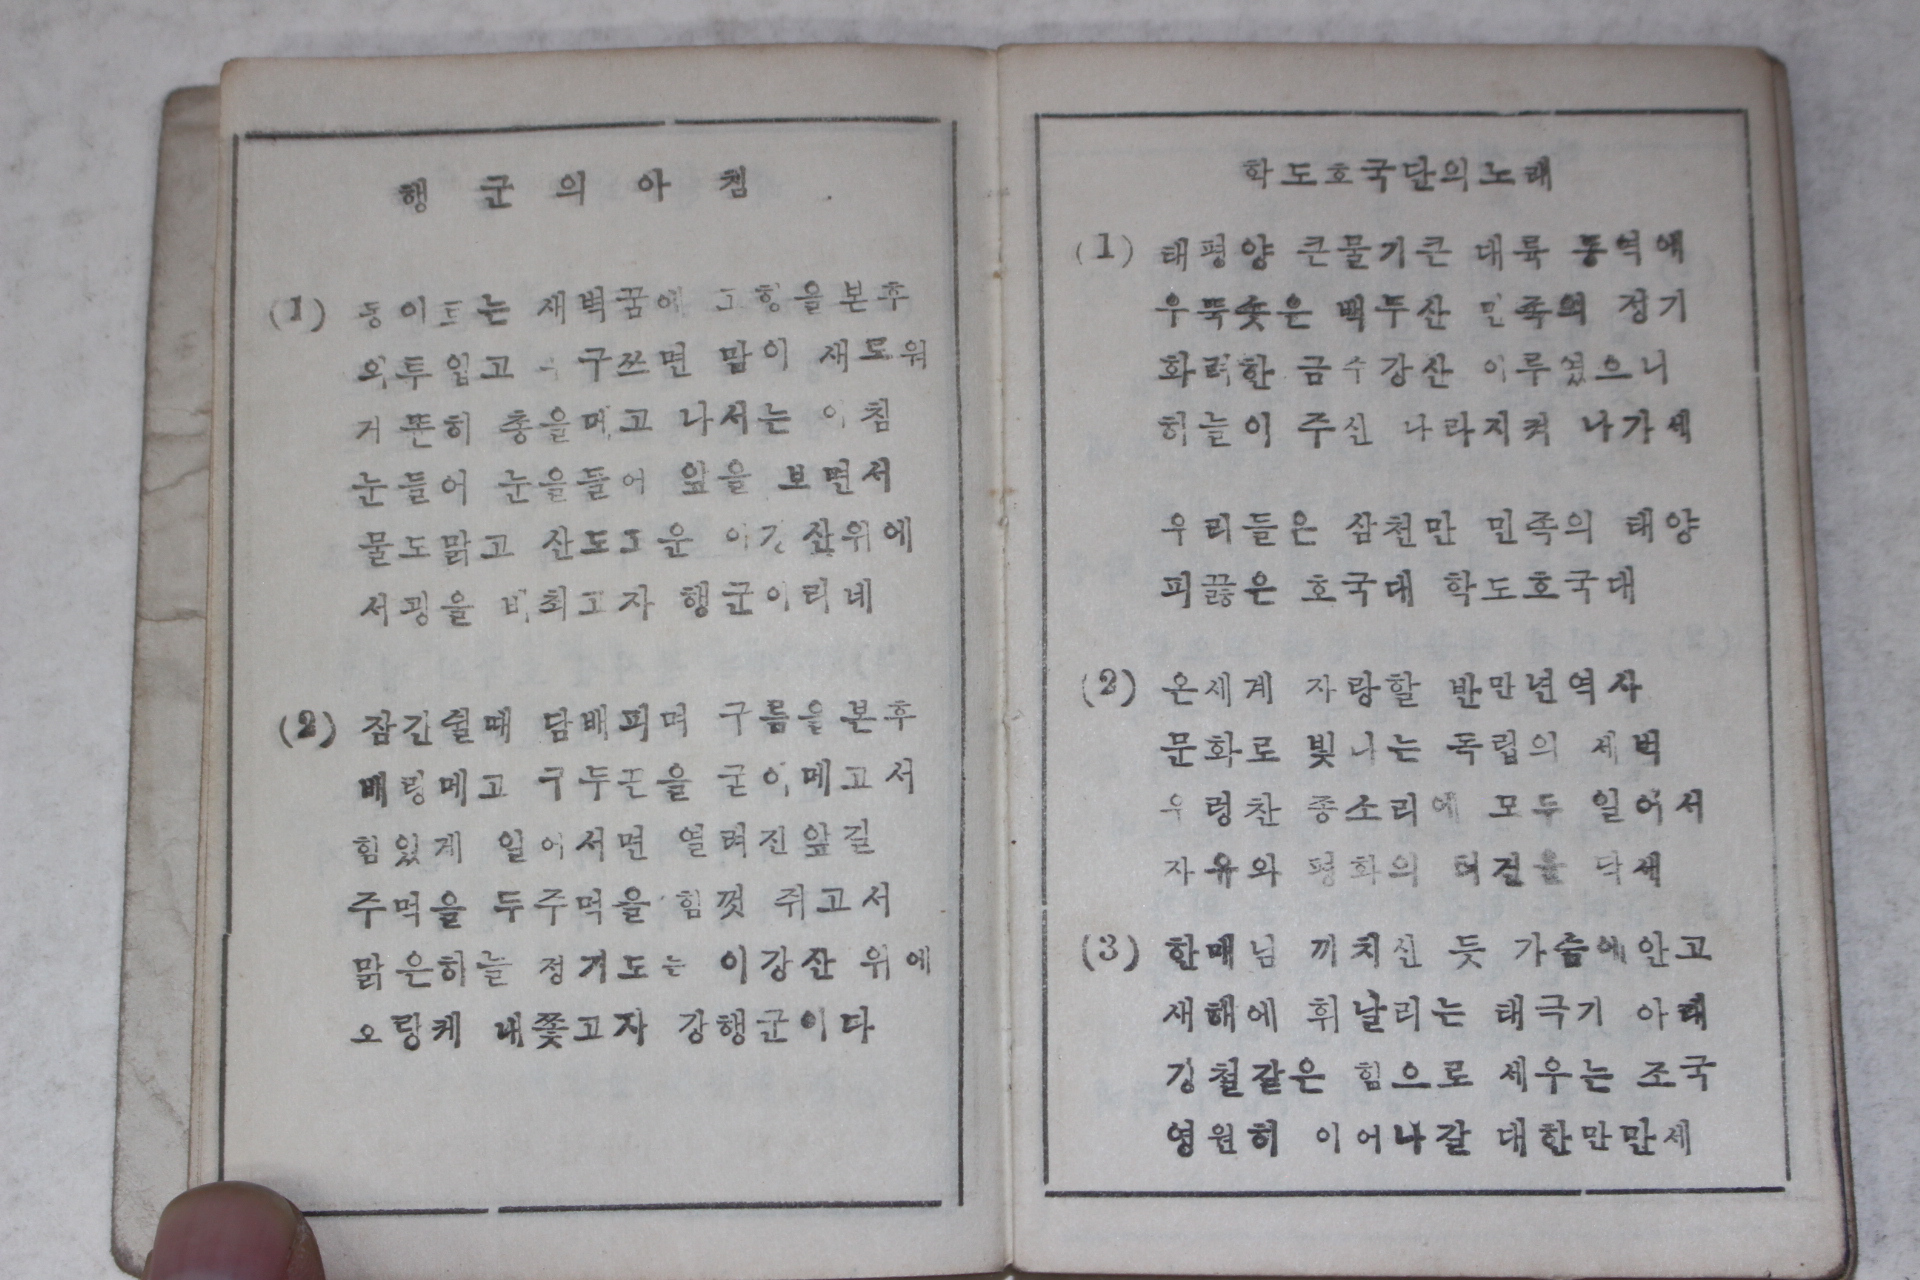 행군의아침
(1) 동이트는 새벽꿈에 고향을본후
외투입고 구쓰면 맘이 새로워
거뜬히 총을메고 나서는 아침
눈들어 눈을들어 앞을 보면서
물도맑고 산도고운 이강산위에
서광을 비최고자 행군이리네
(2) 잠간쉴때 담배피며 구름을본후
배랑메고 구두끈을 굳이메고서
힘있게 일어서면 열려진앞길
주먹을 두주먹을 힘껏 쥐고서
맑은하늘 정기도는 이강산 위에
오랑케 내쫓고자 강행군이다
학도호국단의노래
(1) 태평양 큰물기큰 대륙 동역에
우뚝솟은 백두산 민족의 정기
화려한 금수강산 이루었으니
하늘이 주신 나라지켜 나가세
우리들은 삼천만 민족의 태양
피끓은 호국대 학도호국대
(2) 온세계 자랑할 반만년역사
문화로 빛나는 독립의 새벽
우렁찬 종소리에 모두 일어서
자유와 평화의 터전을 닥세
(3) 한배님 끼치신 뜻 가슴에안고
새해에 휘날리는 태극기 아래
강철같은 힘으로 세우는 조국
영원히 이어나갈 대한만만세